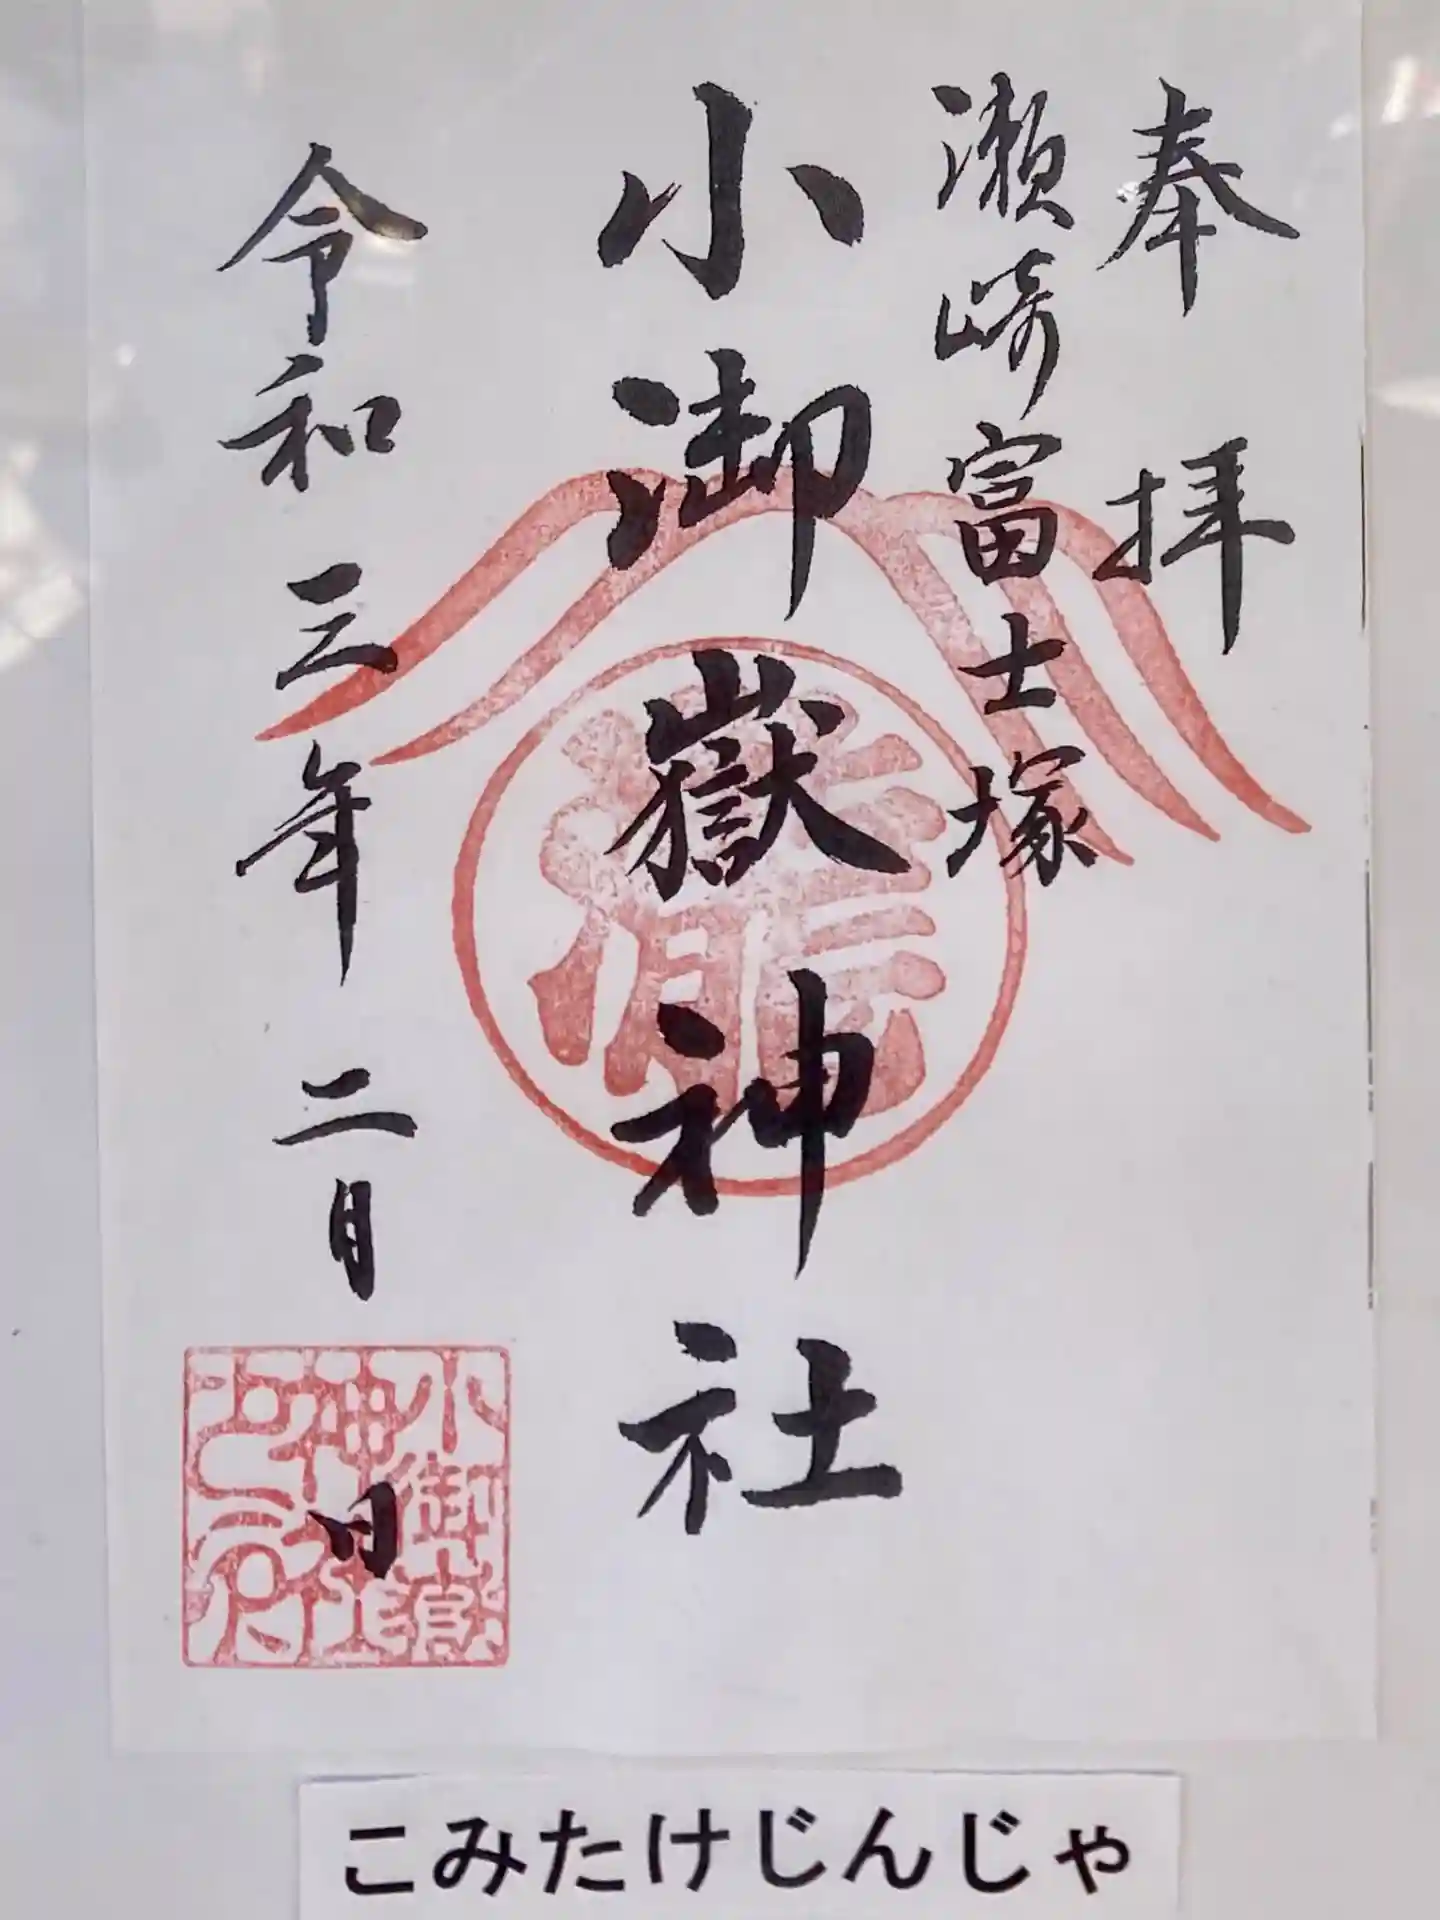 奉拝
瀬崎富士塚
小御嶽神社
令和三年二月 日
小御嶽
神社
こみたけじんじゃ